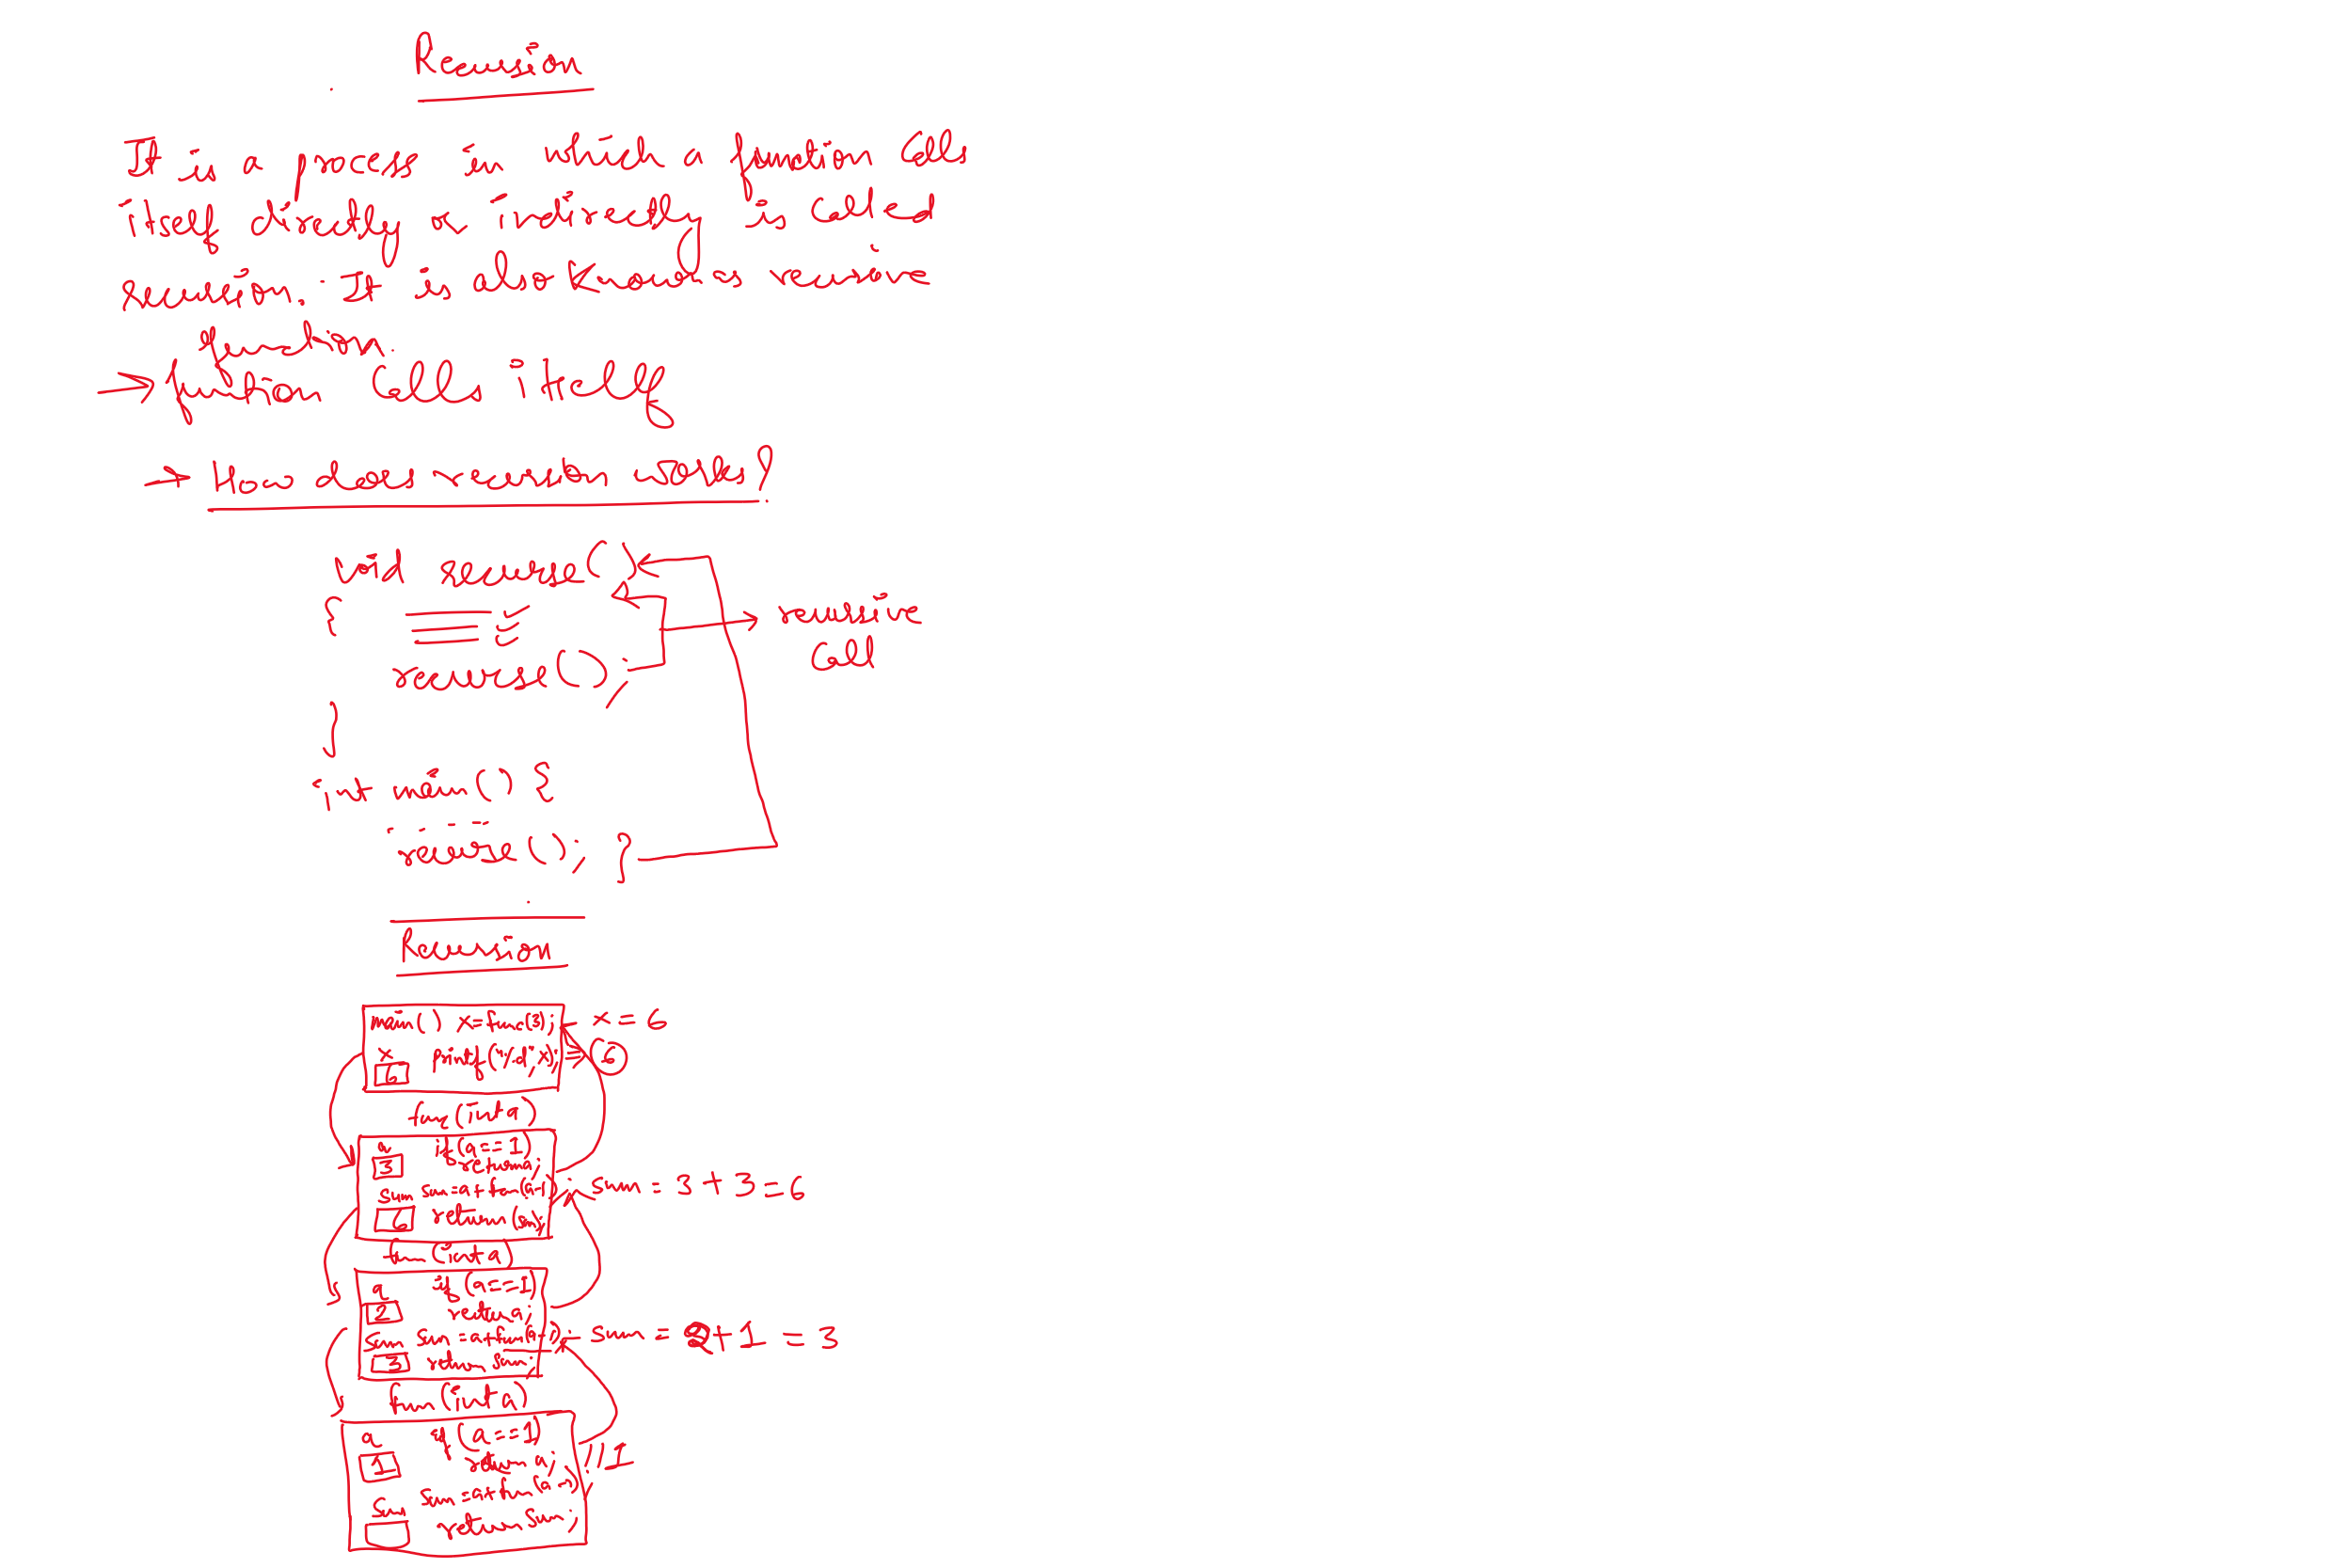 Recursion
It is a process in which a function calls
itself directly or indirectly is called
recursion. It is also known as recursive
function.
→ function calls itself
→ How does recursion works?
void recurse()
{
recursive
call
recurse();
}
int main() {
recurse(); }
Recursion
main() x=fun(3); x=6
x printf("%d",x); 6
6
fun(int a)
a if(a==1)
3 return a;
sum sum=a+fun(a-1); sum = 3+3=6
6 return(sum);
fun(int a)
a if(a==1)
2 return a;
sum sum=a+fun(a-1); sum = 2+1=3
3 return sum;
fun(int a)
a if(a==1)
1 return a; //1
sum sum=a+fun(a-1);
return sum;